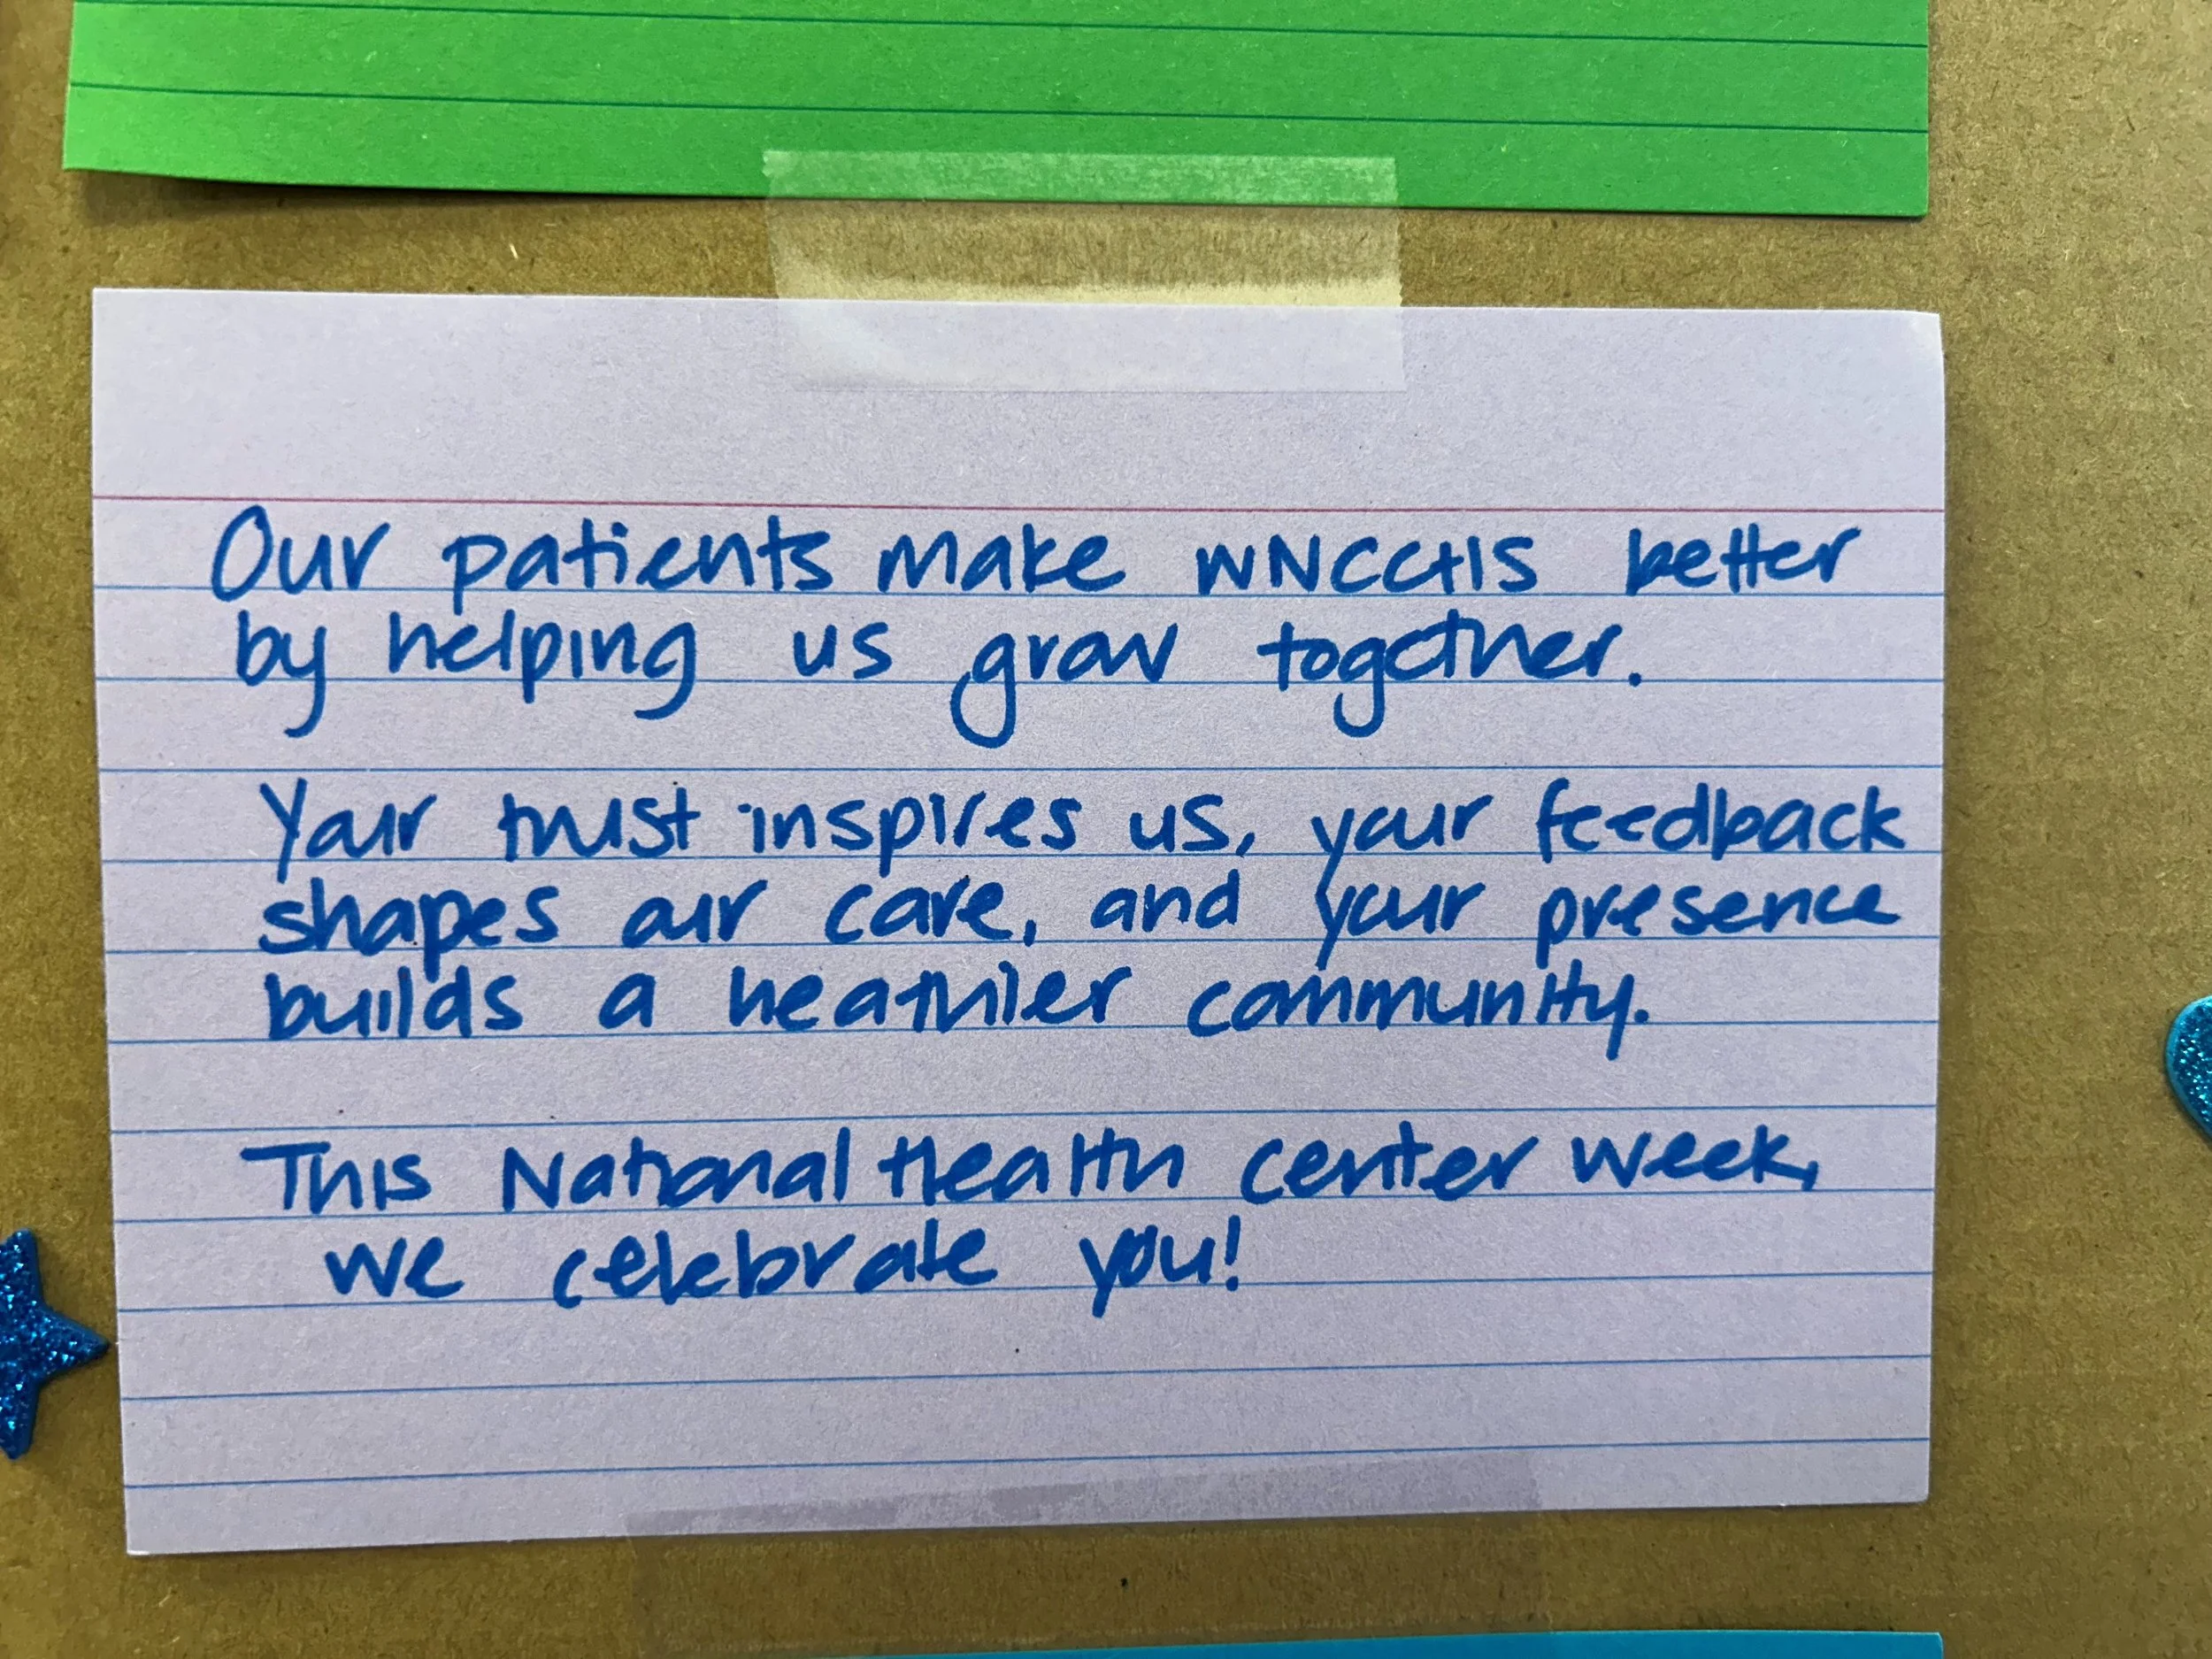 Our patients make WNCCHS better
by helping us grow together.
Your trust inspires us, your feedback
shapes our care, and your presence
builds a heathier community.
This National Health Center Week,
we celebrate you!